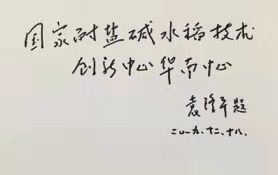 国家耐盐碱水稻技术
创新中心华南中心
袁隆平题
二〇一九.十二.十八.